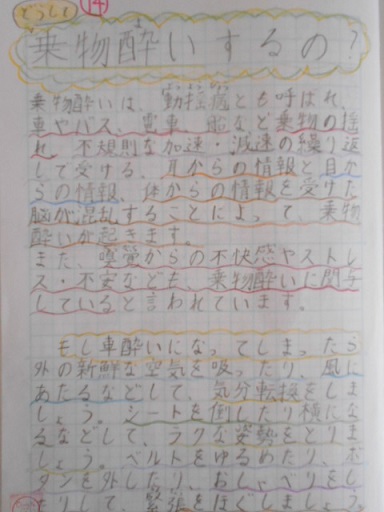 どうして
14
乗物酔いするの?
よ
乗物酔いは、動揺病とも呼ばれ、
車やバス、電車、船など乗物の揺
れ、不規則な加速・減速の繰り返
しで受ける、耳からの情報と目か
らの情報、体からの情報を受けた
脳が混乱することによって、乗物
酔いが起きます。
また、嗅覚からの不快感やストレ
ス・不安なども、乗物酔いに関与
していると言われています。
もし車酔いになってしまったら
外の新鮮な空気を吸ったり、風に
あたるなどして、気分転換をしま
しょう。シートを倒したり横にな
るなどして、ラクな姿勢をとりま
しょう。ベルトをゆるめたり、ボ
タンを外したり、おしゃべりをし
たりして、緊張をほぐしましょう。